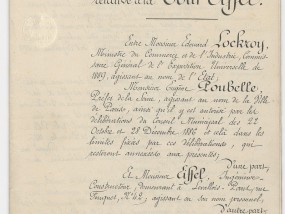 relative à la Tour Eiffel.
Entre Monsieur Edouard Lockroy,
Ministre du Commerce et de l'Industrie, Commis-
saire Général de l'Exposition Universelle de
1889, agissant au nom de l'Etat,
Monsieur Eugène Poubelle,
Préfet de la Seine, agissant au nom de la Ville
de Paris, ainsi qu'il y est autorisé par les
délibérations du Conseil Municipal des 22
Octobre et 28 Décembre 1886 et cela dans les
limites fixées par ces délibérations, qui
resteront annexées aux présentes,
D'une part,
Et Monsieur Eiffel, Ingénieur-
Constructeur, demeurant à Levallois-Perret, rue
Fouquet, N° 42, agissant en son nom personnel,
D'autre part,